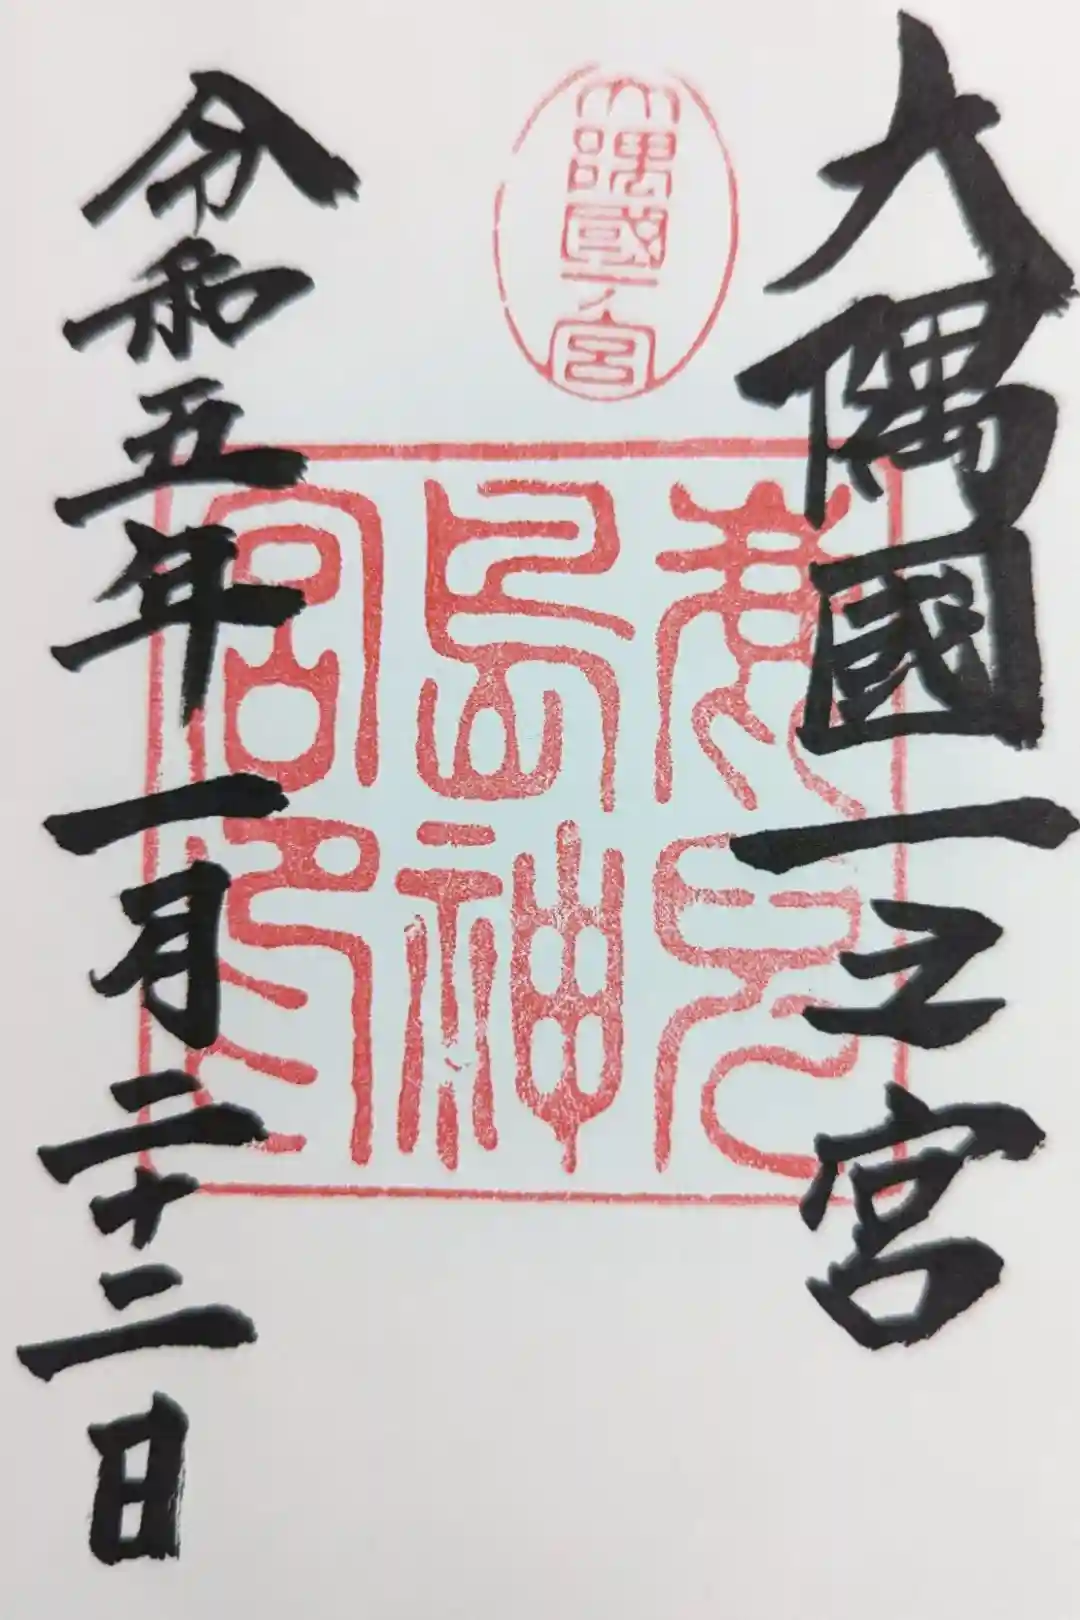 大隅國一之宮
大隅國一ノ宮
鹿兒
島神
宮印
令和五年一月二十二日